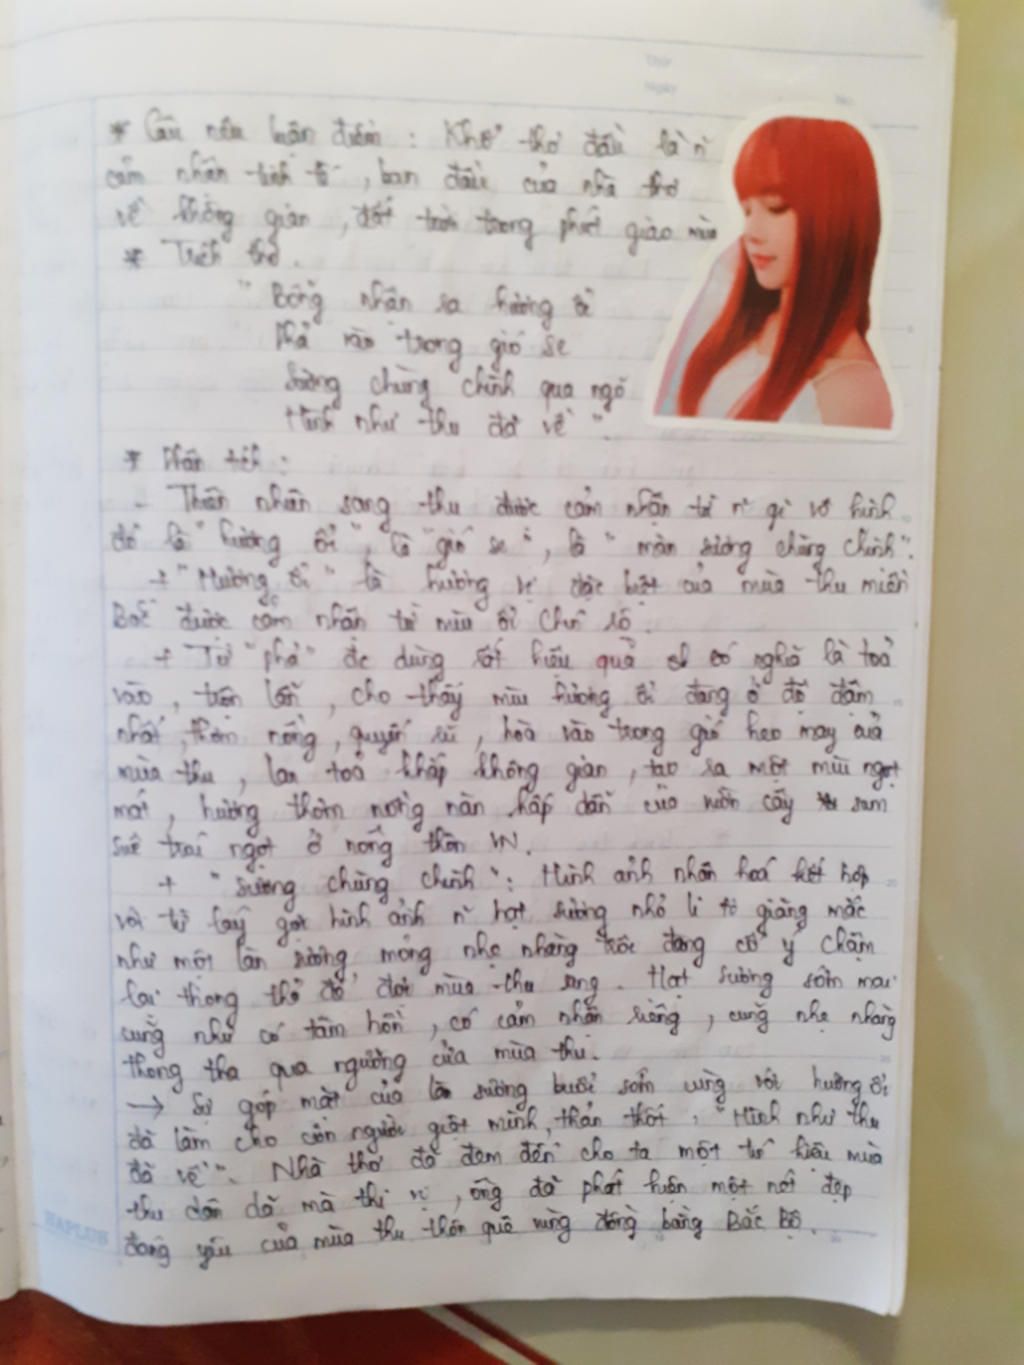 Thứ
Ngày
No.
* Câu nêu luận điểm : Khổ thơ đầu là n~
cảm nhận tinh tế , ban đầu của nhà thơ
về không gian , đất trời trong phút giao mùa
* Trích thơ.
" Bỗng nhận ra hương ổi
Phả vào trong gió se
Sương chùng chình qua ngõ
Hình như thu đã về ".
* Phân tích :
- Thiên nhiên sang thu được cảm nhận từ n~ gì vô hình
đó là " hương ổi ", là " gió se ", là " màn sương chùng chình".
+ " Hương ổi " là hương vị đặc biệt của mùa thu miền
Bắc được cảm nhận từ mùi ổi chín rộ.
+ Từ " phả " đc dùng rất hiệu quả có nghĩa là toả
vào , trộn lẫn , cho thấy mùi hương ổi đang ở độ đậm
nhất , thơm nồng , quyến rũ , hoà vào trong gió heo may của
mùa thu , lan toả khắp không gian , tạo ra một mùi ngọt
mát , hương thơm nồng nàn hấp dẫn của vườn cây sum
suê trái ngọt ở nông thôn VN.
+ " Sương chùng chình ": Hình ảnh nhân hoá kết hợp
với từ láy gợi hình ảnh n~ hạt sương nhỏ li ti giăng mắc
như một làn sương mỏng nhẹ nhàng trôi đang cố ý chậm
lại thong thả để đợi mùa thu sang . Hạt sương sớm mai
cũng như có tâm hồn , có cảm nhận riêng , cũng nhẹ nhàng
thong tha qua ngưỡng cửa mùa thu.
→ Sự góp mặt của làn sương buổi sớm cùng với hương ổi
đã làm cho con người giật mình, thản thốt : "Hình như thu
đã về". Nhà thơ đã đem đến cho ta một tín hiệu mùa
thu dân dã mà thi vị , ông đã phát hiện một nét đẹp
đáng yêu của mùa thu thôn quê vùng đồng bằng Bắc Bộ.
HAPLUS